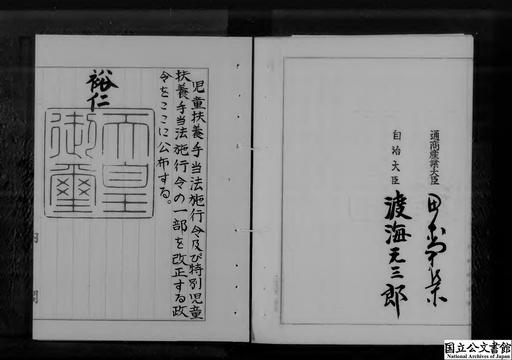 通商産業大臣
自治大臣 渡海元三郎
児童扶養手当法施行令及び特別児童
扶養手当法施行令の一部を改正する政
令をここに公布する。
裕仁
天皇
御璽
内閣
国立公文書館
National Archives of Japan